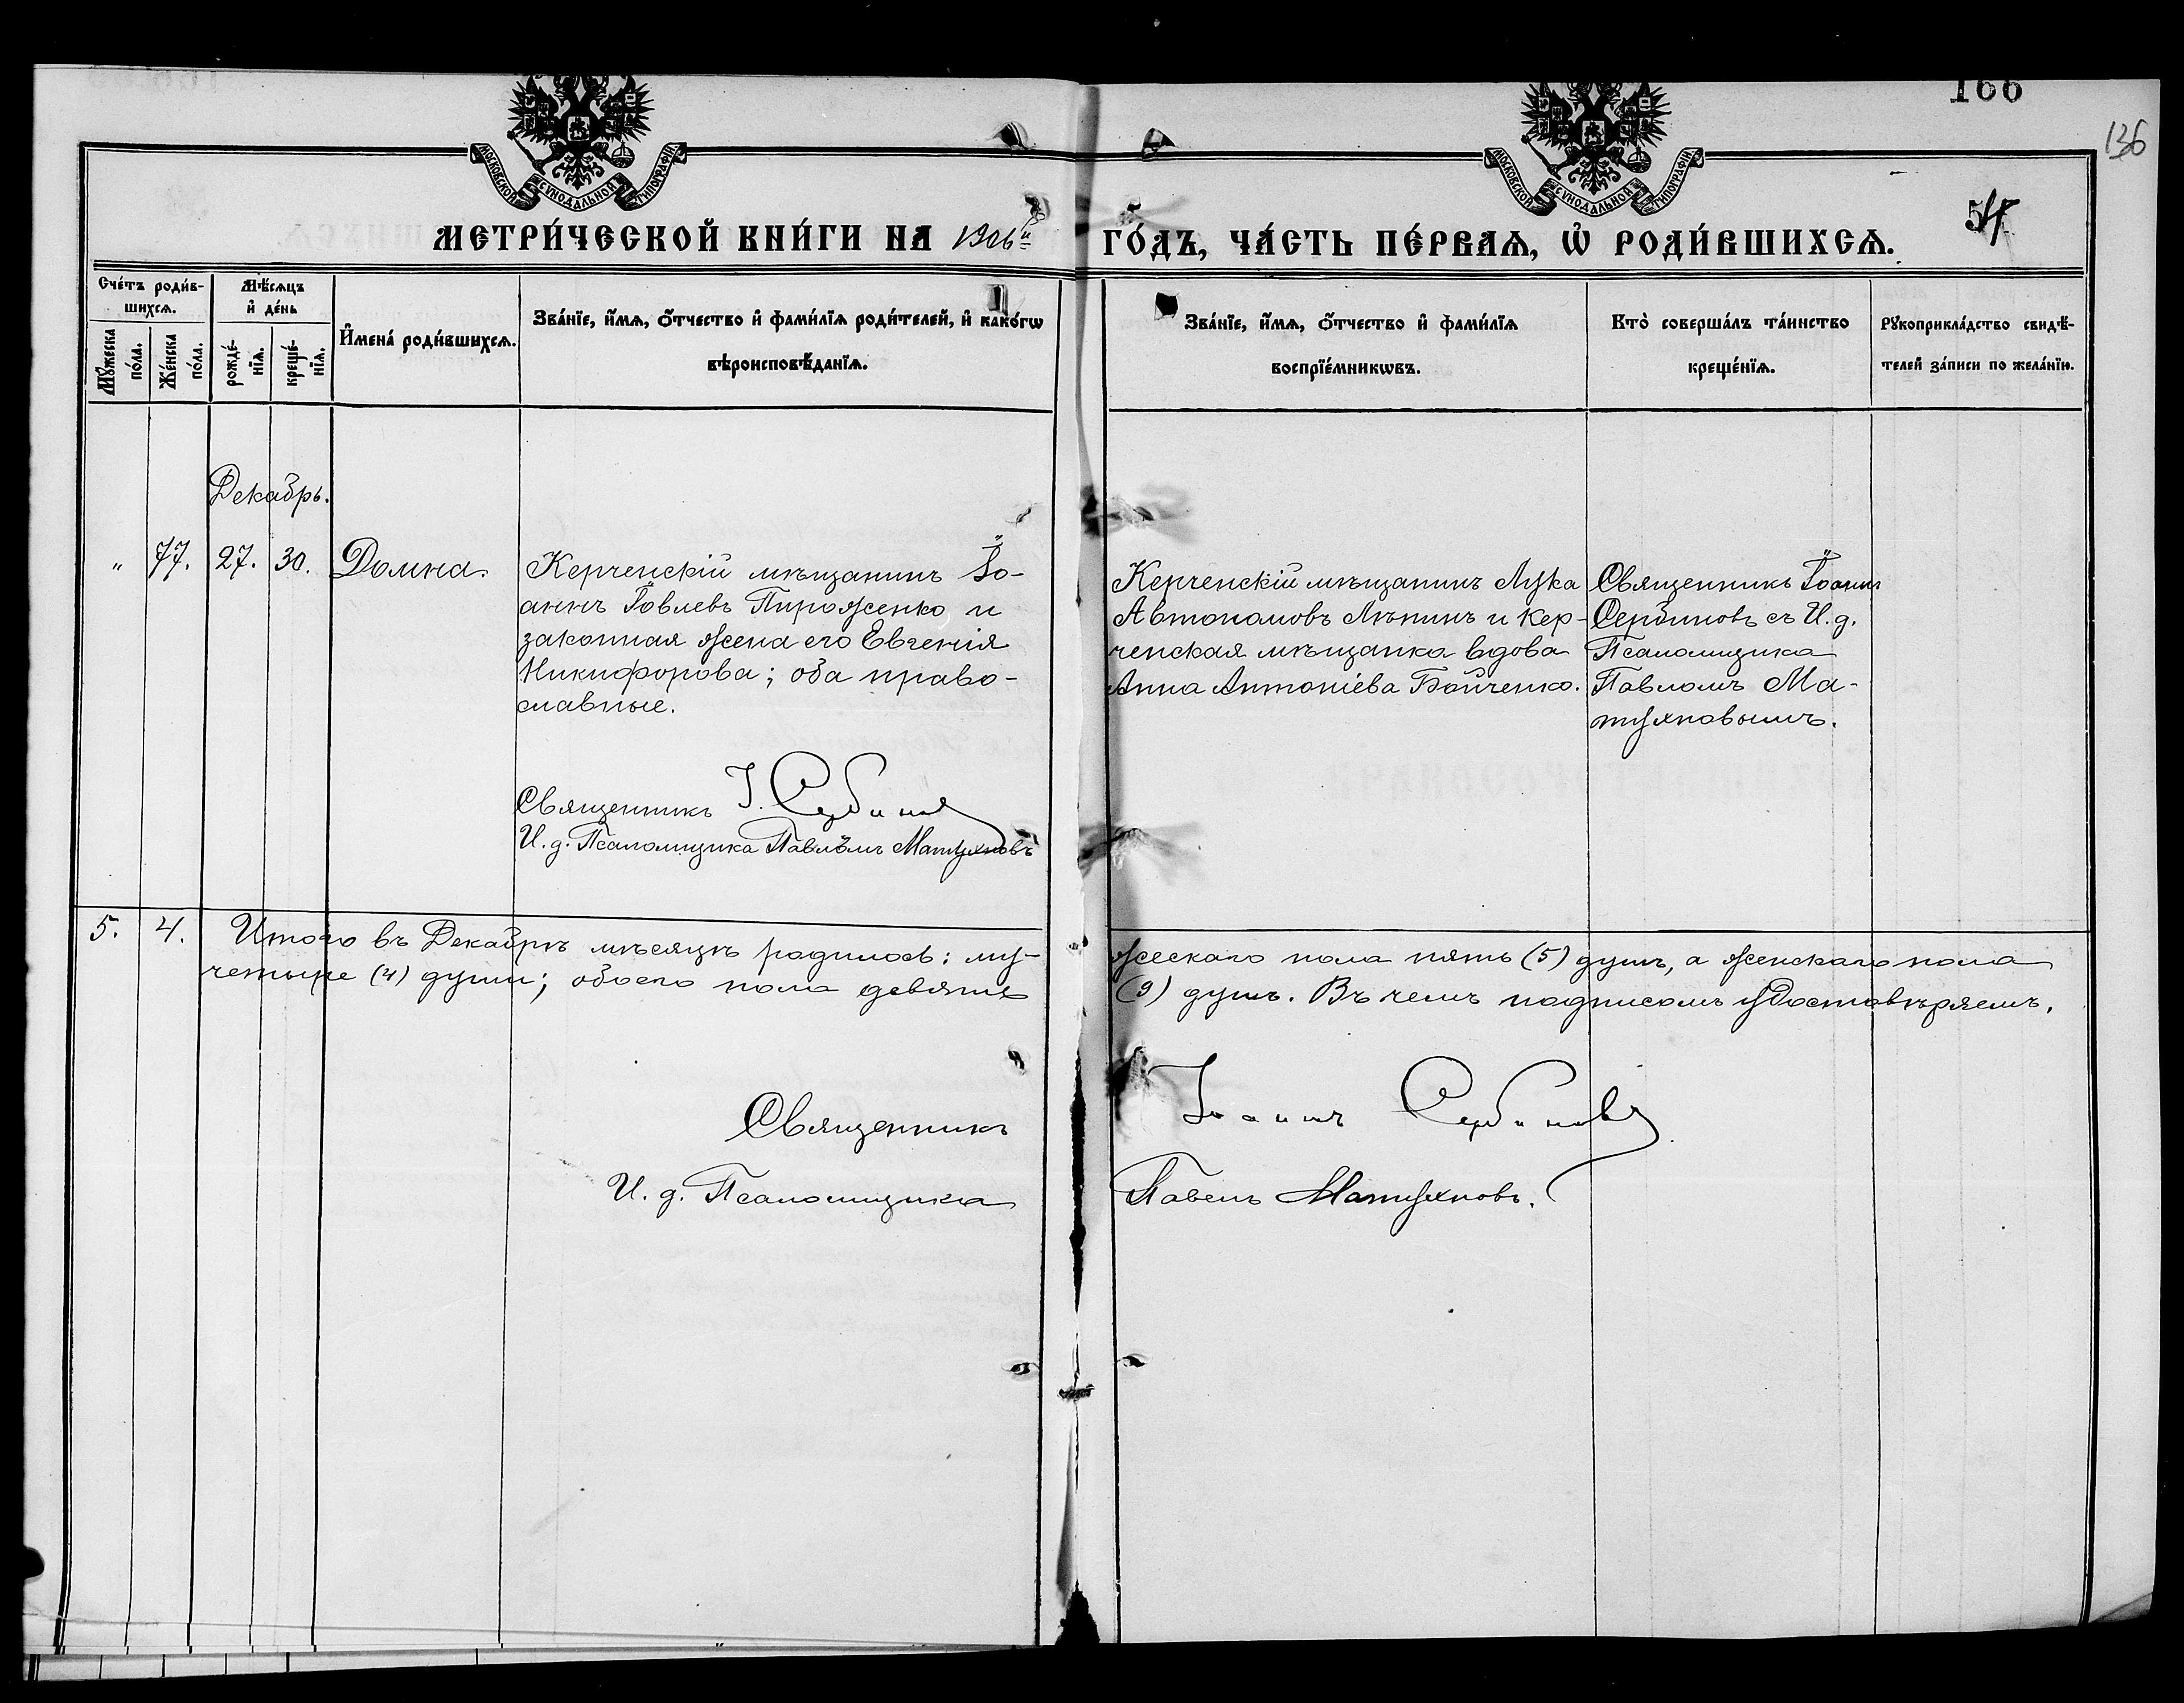 166
136
МОСКОВСКОЙ СѴНОДАЛЬНОЙ ТИПОГРАФІИ
МОСКОВСКОЙ СѴНОДАЛЬНОЙ ТИПОГРАФІИ
МЕТРИ́ЧЕСКОЙ КНИ́ГИ НА 1906й ГО́ДЪ, ЧА́СТЬ ПЕ́РВАѦ, Ѡ҆ РОДИ́ВШИХСѦ.
Сче́тъ роди́в-
шихсѧ.
Мꙋ́жеска по́ла.
Же́нска по́ла.
Мѣ́сѧцъ
и҆ де́нь
рожде́-нїѧ.
креще́-нїѧ.
И҆мена̀ роди́вшихсѧ.
Зва́нїе, и҆́мѧ, ѻ҆́тчество и҆ фами́лїѧ роди́телей, и҆ како́гѡ
вѣроисповѣ́данїѧ.
Зва́нїе, и҆́мѧ, ѻ҆́тчество и҆ фами́лїѧ
воспрїе́мникѡвъ.
Кто̀ соверша́лъ та́инство
креще́нїѧ.
Рꙋкоприкла́дство свидѣ́-
телей за́писи по жела́нїю.
Декабрь.
" 77. 27. 30. Домна.
Керченскій мѣщанинъ Іо-
аннъ Іовлевъ Пироженко и
законная жена его Евгенія
Никифорова; оба право-
славные.
Священникъ І. Сербиновъ
И. д. Псаломщика Павелъ Матухновъ
Керченскій мѣщанинъ Лука
Автономовъ Лѣпинъ и Кер-
ченская мѣщанка вдова
Анна Антоніева Бойченко.
Священникъ Іоаннъ
Сербиновъ съ И. д.
Псаломщика
Павломъ Ма-
тухновымъ.
5. 4. Итого въ Декабрѣ мѣсяцѣ родилось: му-жескаго пола пять (5) душъ, а женскаго пола
четыре (4) души; обоего пола девять (9) душъ. Въ чемъ подписомъ удостовѣряемъ.
Священникъ Іоаннъ Сербиновъ
И. д. Псаломщика Павелъ Матухновъ.